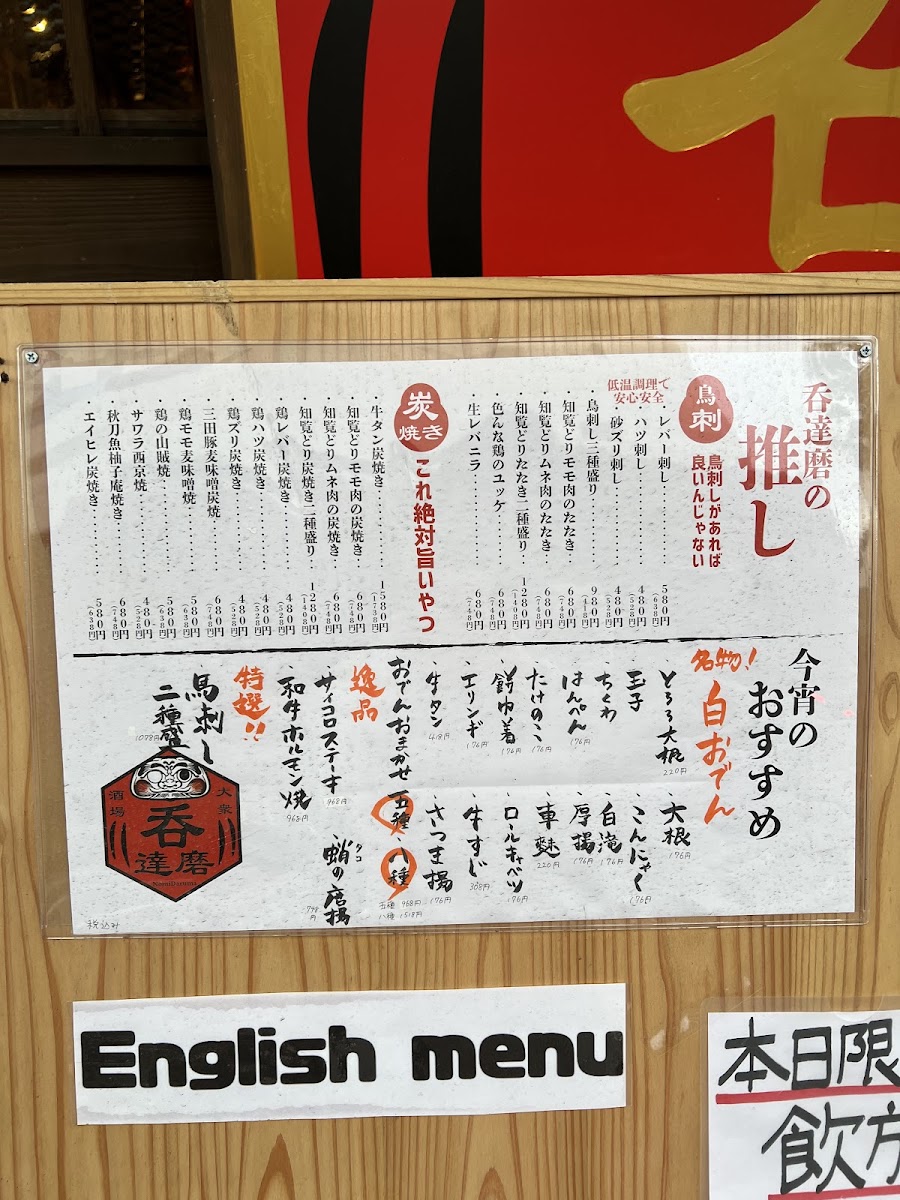 呑達磨の
推し
鳥刺
鳥刺しがあれば
良いんじゃない
・レバー刺し 580円(638円)
・ハツ刺し 480円(528円)
低温調理で
安心安全
・砂ズリ刺し 480円(528円)
・鳥刺し三種盛り 980円
・知覧どりモモ肉のたたき 680円(748円)
・知覧どりムネ肉のたたき 680円(748円)
・知覧どりたたき二種盛り 1280円(1408円)
・色んな鶏のユッケ 680円(748円)
・生レバニラ 680円(748円)
炭焼き
これ絶対旨いやつ
・牛タン炭焼き 1580円(1738円)
・知覧どりモモ肉の炭焼き 680円(748円)
・知覧どりムネ肉の炭焼き 680円(748円)
・知覧どり炭焼き二種盛り 1280円(1408円)
・鶏レバー炭焼き 480円(528円)
・鶏ハツ炭焼き 480円(528円)
・鶏ズリ炭焼き 480円(528円)
・三田豚麦味噌炭焼 680円(748円)
・鶏モモ麦味噌焼 580円(638円)
・鶏の山賊焼 580円(638円)
・サワラ西京焼 480円(528円)
・秋刀魚柚子庵焼き 680円(748円)
・エイヒレ炭焼き 580円(638円)
今宵の
おすすめ
名物!
白おでん
・とろろ大根 220円
・大根 176円
・玉子
・こんにゃく 176円
・ちくわ
・白滝 176円
・はんぺん 176円
・厚揚 176円
・たけのこ 176円
・車麩 220円
・餅巾着 176円
・ロールキャベツ 176円
・エリンギ 176円
・牛すじ 308円
・牛タン 418円
・さつま揚 176円
おでんおまかせ 五種・八種
五種 968円
八種 1518円
逸品
・サイコロステーキ 968円
・蛸の唐揚 798円
タコ
・和牛ホルモン焼 968円
特選!!
・馬刺し
二種盛 1078円
大衆
酒場
呑
達磨
税込み
English menu
本日限
飲方